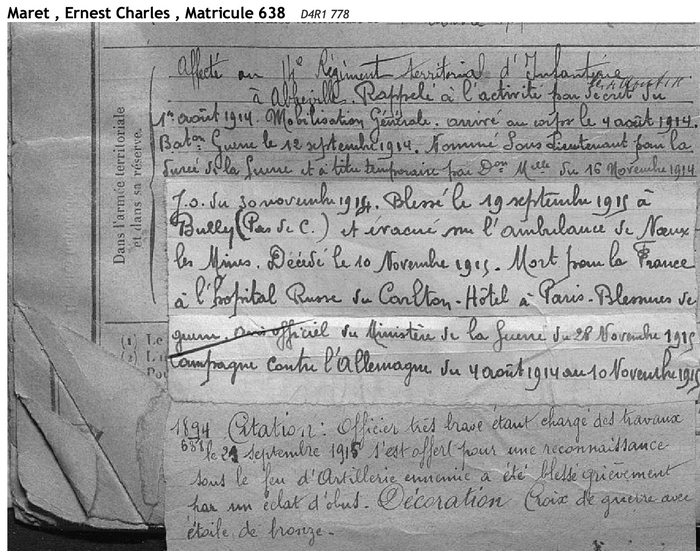 Maret , Ernest Charles , Matricule 638 D4R1 778
Dans l'armée territoriale
et dans sa réserve.
Affecté au 14e Régiment territorial d'Infanterie
à Abbeville. Rappelé à l'activité par décret du
1er août 1914. Mobilisation Générale. arrivé au corps le 4 août 1914.
Baton Guerre le 12 septembre 1914. Nommé Sous Lieutenant pour la
durée de la Guerre et à titre temporaire par Don Mlle du 16 Novembre 1914
J.O. du 30 novembre 1914. Blessé le 19 septembre 1915 à
Bully (Pas de C.) et évacué sur l'ambulance de Nœux
les Mines. Décédé le 10 Novembre 1915. Mort pour la France
à l'hôpital Russe du Carlton-Hôtel à Paris. Blessures de
guerre. avis officiel du Ministère de la Guerre du 28 Novembre 1915
Campagne contre l'Allemagne du 4 août 1914 au 10 Novembre 1915
(1) Le
(2) L'i
Pou
1894 Citation : Officier très brave étant chargé des travaux
le septembre 1915 s'est offert pour une reconnaissance
sous le feu d'Artillerie ennemie a été blessé grièvement
par un éclat d'obus. Décoration Croix de guerre avec
étoile de bronze.